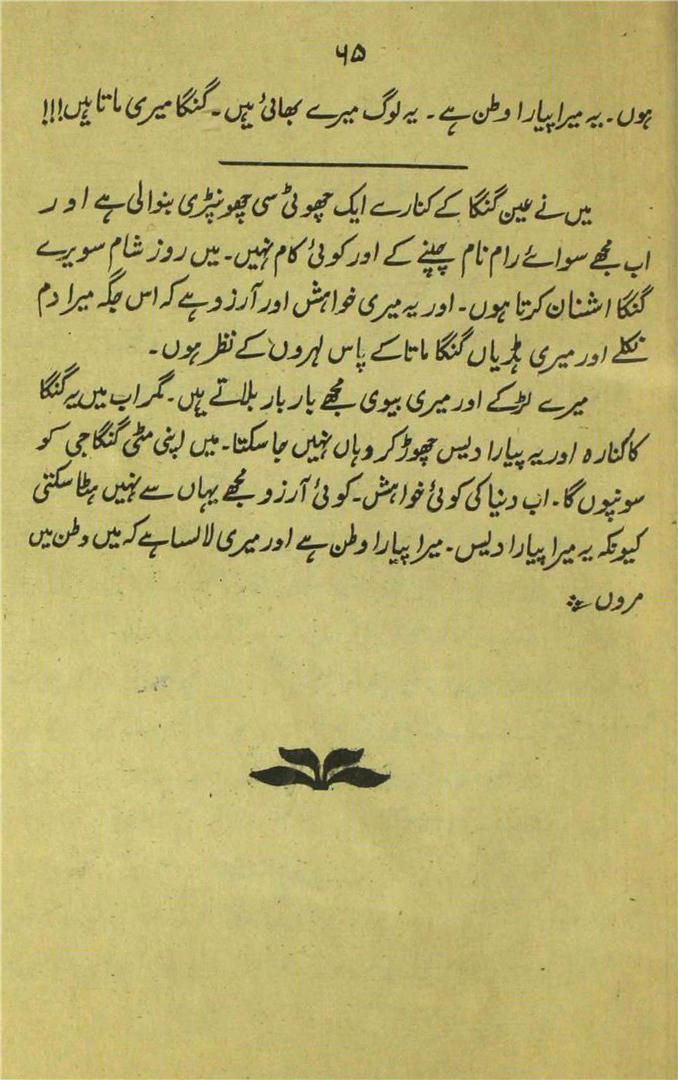 ۶۵
ہوں۔ یہ میرا پیارا وطن ہے۔ یہ لوگ میرے بھائی ہیں۔ گنگا میری ماتا ہیں!!!
میں نے عین گنگا کے کنارے ایک چھوٹی سی جھونپڑی بنوالی ہے اور
اب مجھے سوائے رام نام جپنے کے اور کوئی کام نہیں۔ میں روز شام سویرے
گنگا اشنان کرتا ہوں۔ اور یہ میری خواہش اور آرزو ہے کہ اس جگہ میرا دم
نکلے اور میری ہڈیاں گنگا ماتا کے پاس لہروں کے نظر ہوں۔
میرے لڑکے اور میری بیوی مجھے بار بار بلاتے ہیں۔ مگر اب میں یہ گنگا
کا کنارہ اور یہ پیارا دیس چھوڑ کر وہاں نہیں جا سکتا۔ میں اپنی مٹی گنگا جی کو
سونپوں گا۔ اب دنیا کی کوئی خواہش۔ کوئی آرزو مجھے یہاں سے نہیں ہٹا سکتی
کیونکہ یہ میرا پیارا دیس۔ میرا پیارا وطن ہے اور میری لالسا ہے کہ میں وطن میں
مروں